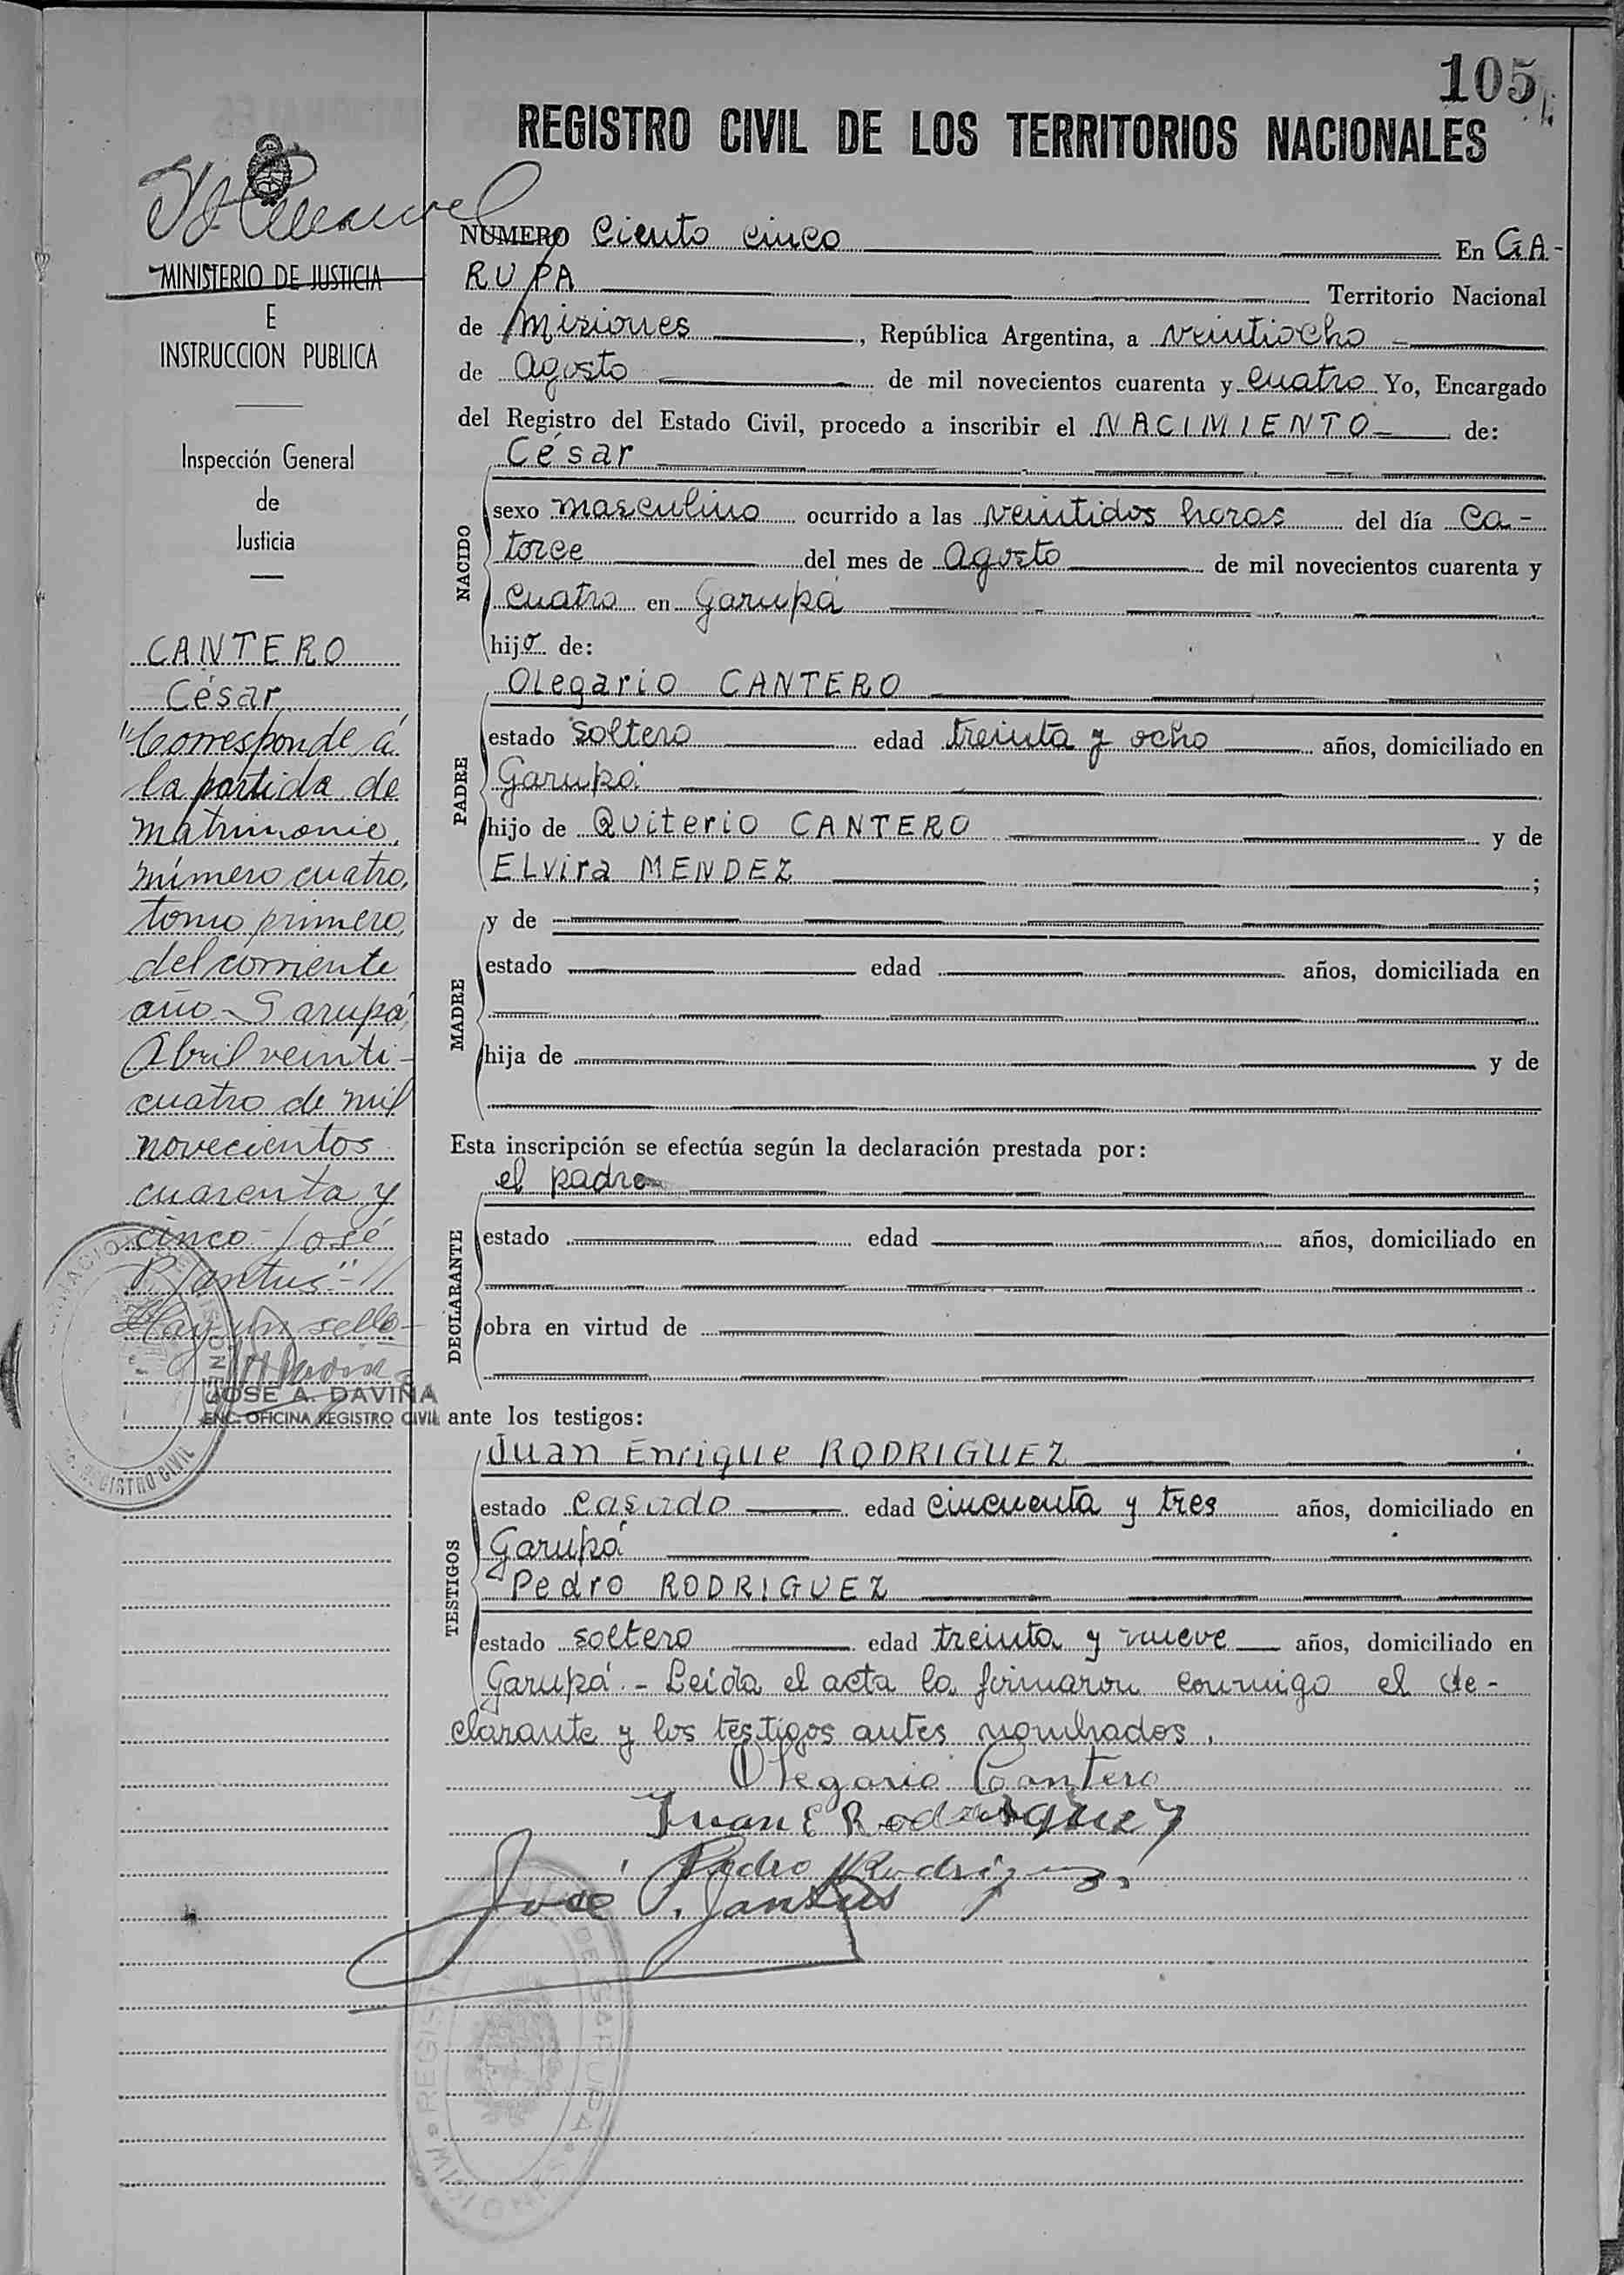 105
REGISTRO CIVIL DE LOS TERRITORIOS NACIONALES
MINISTERIO DE JUSTICIA
E
INSTRUCCION PUBLICA
Inspección General
de
Justicia
CANTERO
César
"Corresponde á
la partida de
matrimonio,
número cuatro,
tomo primero,
del corriente
año - Garupá,
Abril veinti-
cuatro de mil
novecientos
cuarenta y
cinco - José
P. Jantus" -
Hay un sello -
JOSE A. DAVIÑA
ENC. OFICINA REGISTRO CIVIL
NUMERO Ciento cinco En GA-
RUPA Territorio Nacional
de Misiones, República Argentina, a veintiocho
de Agosto de mil novecientos cuarenta y cuatro Yo, Encargado
del Registro del Estado Civil, procedo a inscribir el NACIMIENTO de:
NACIDO
César
sexo masculino ocurrido a las veintidos horas del día ca-
torce del mes de Agosto de mil novecientos cuarenta y
cuatro en Garupá
hijo de:
PADRE
Olegario CANTERO
estado soltero edad treinta y ocho años, domiciliado en
Garupá
hijo de Quiterio CANTERO y de
Elvira MENDEZ ;
MADRE
y de
estado edad años, domiciliada en
hija de y de
Esta inscripción se efectúa según la declaración prestada por:
DECLARANTE
el padre
estado edad años, domiciliado en
obra en virtud de
ante los testigos:
TESTIGOS
Juan Enrique RODRIGUEZ
estado casado edad cincuenta y tres años, domiciliado en
Garupá
Pedro RODRIGUEZ
estado soltero edad treinta y nueve años, domiciliado en
Garupá. - Leída el acta la firmaron conmigo el de-
clarante y los testigos antes nombrados.
Olegario Cantero
Juan E Rodriguez
Pedro Rodriguez
José P. Jantus